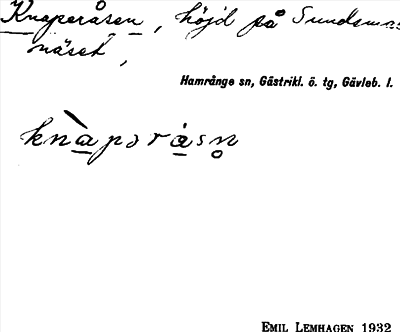 Knaperåsen, höjd på Sundsmar
näset,
Hamrånge sn, Gästrikl. ö. tg, Gävleb. l.
knàpəråsn̥
EMIL LEMHAGEN 1932